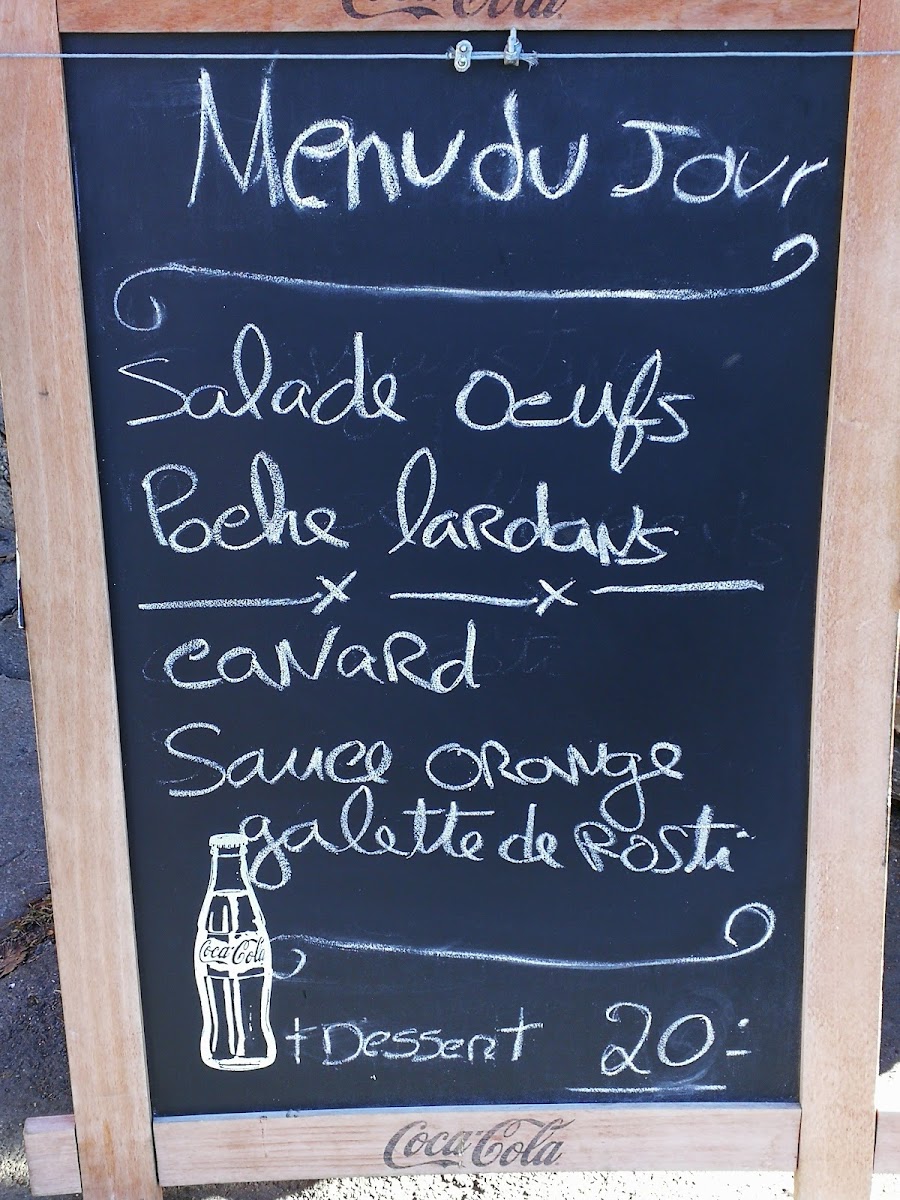 Coca-Cola
Menu du Jour
Salade oeufs
Poche lardons
Canard
Sauce orange
galette de Rosti
Coca-Cola
+ Dessert 20.-
Coca-Cola